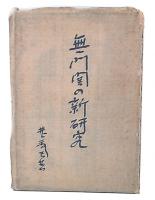 無門関の新研究
井上秀天著